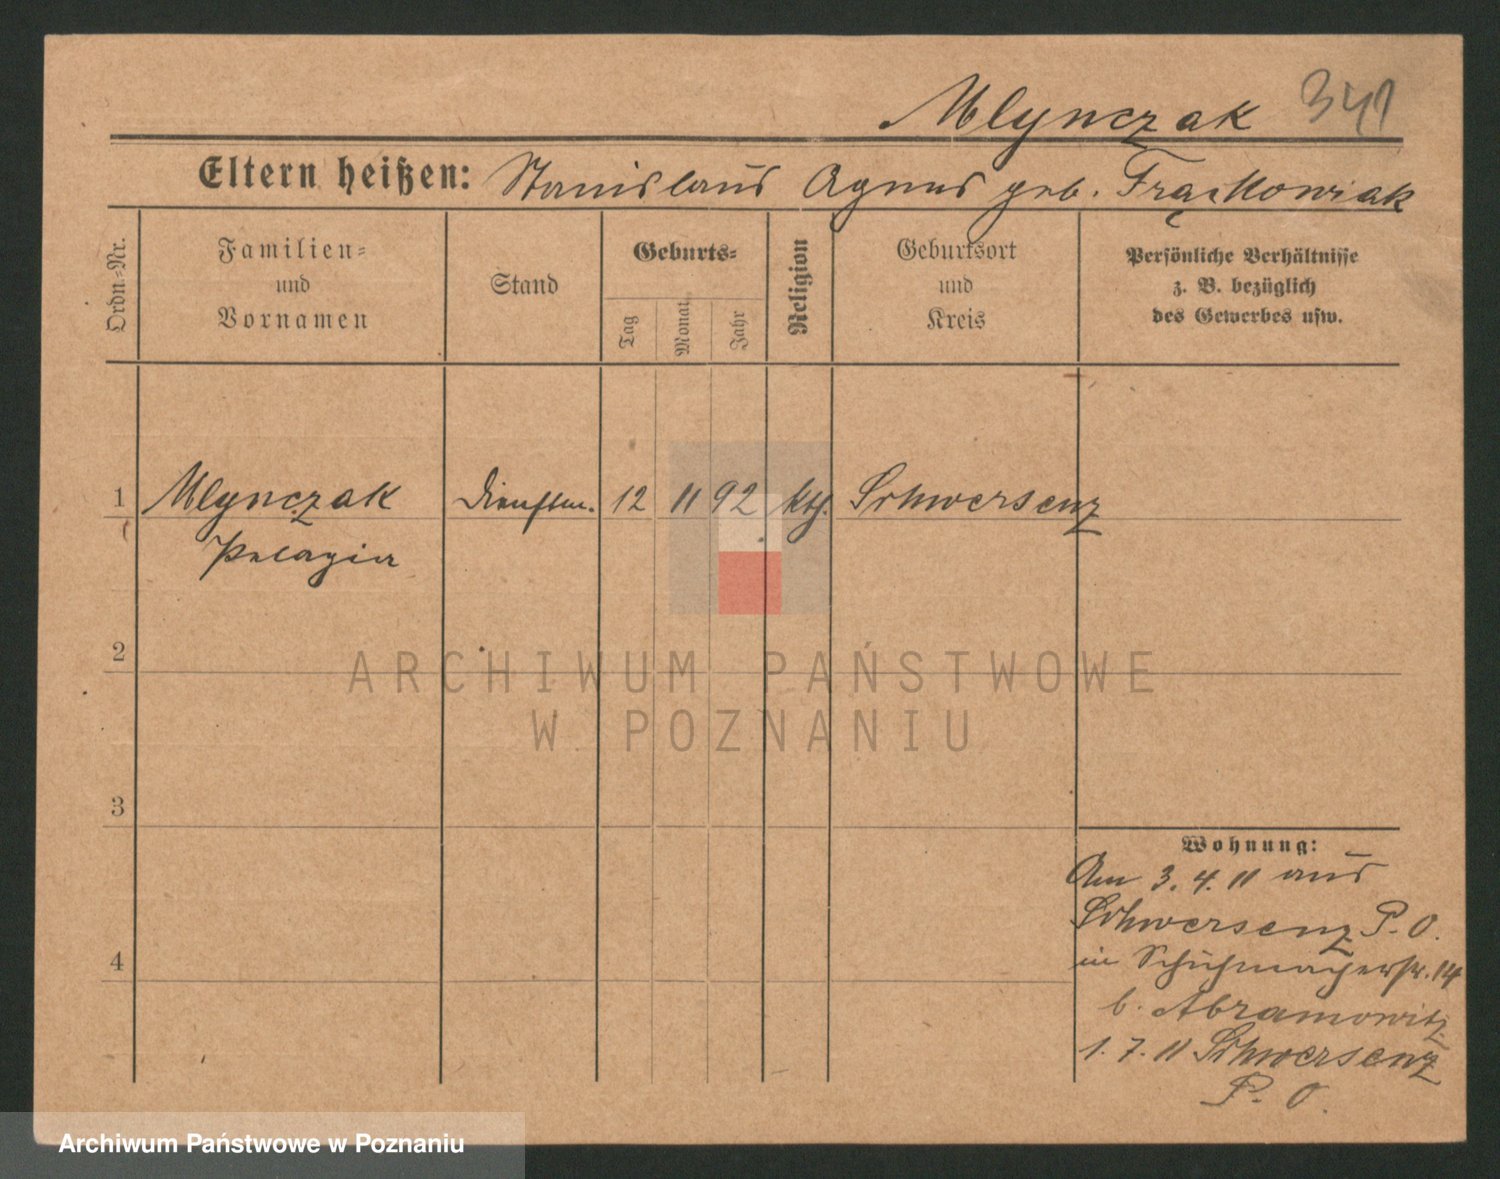 Mlynczak 341
Eltern heißen: Stanislaus Agnes geb. Frąckowiak
Ordn.-Nr.
Familien-
und
Vornamen
Stand
Geburts-
Tag
Monat
Jahr
Religion
Geburtsort
und
Kreis
Persönliche Verhältnisse
z. B. bezüglich
des Gewerbes usw.
1 Mlynczak Dienstm. 12 11 92 kth. Schwersenz
Pelagia
2
ARCHIWUM PAŃSTWOWE
W POZNANIU
3
Wohnung:
Am 3.4.11 aus
Schwersenz P. O.
4
in Schuhmacherstr. 14
b. Abramowitz
1.7.11 Schwersenz
P. O.
Archiwum Państwowe w Poznaniu